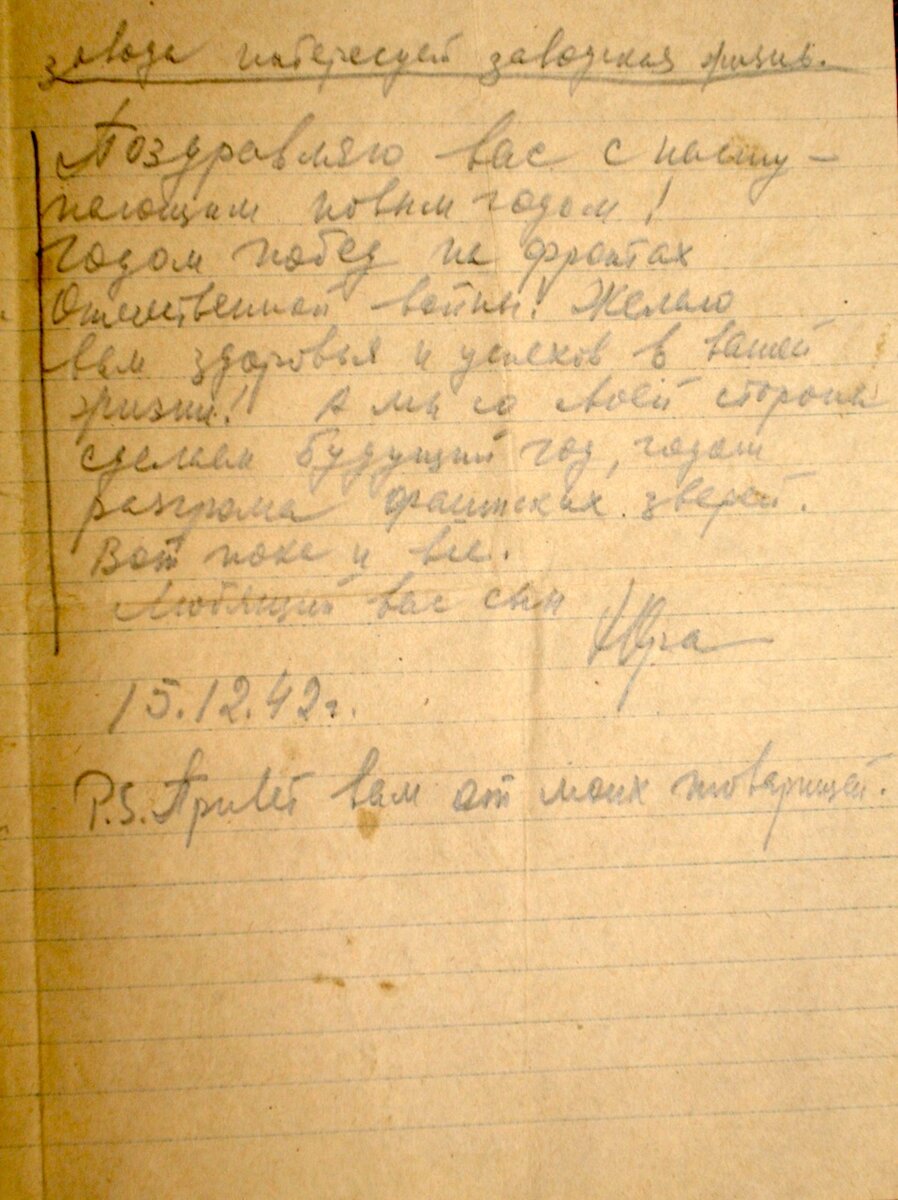 завода интересует заводская жизнь.
Поздравляю вас с насту-
пающим новым годом!
Годом побед на фронтах
Отечественной войны! Желаю
вам здоровья и успехов в вашей
жизни! А мы со своей стороны
сделаем будущий год, годом
разгрома фашистских зверей.
Вот пока и все.
Любящий вас сын
Юра
15.12.42г.
P.S. Привет вам от моих товарищей.